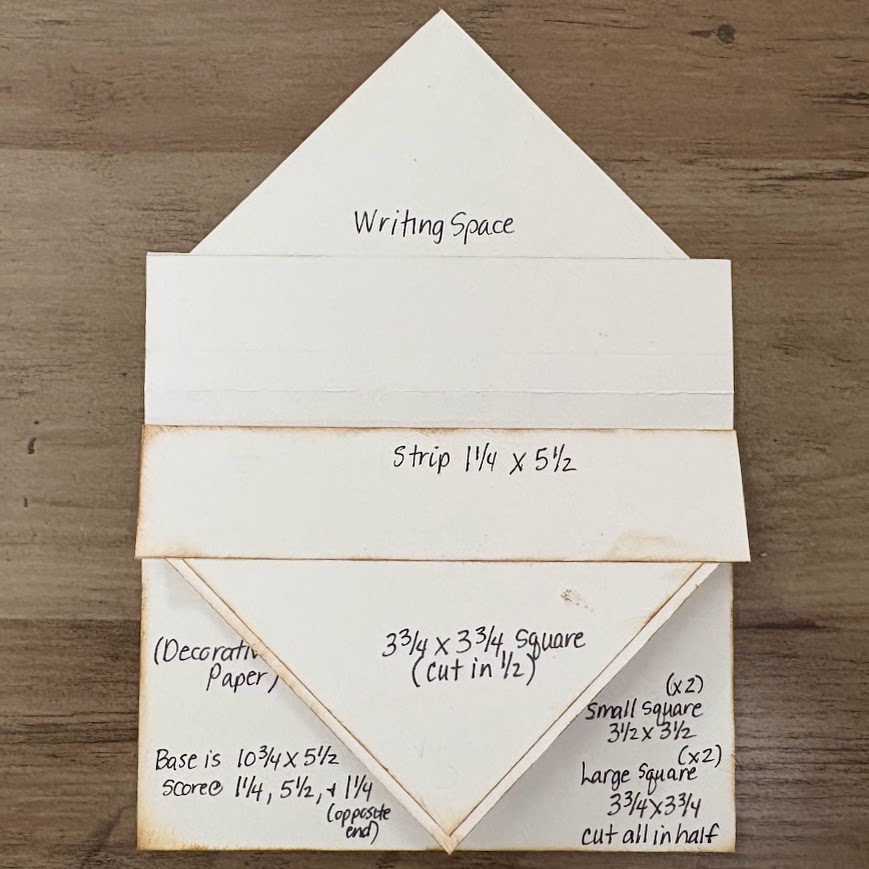 Writing Space
Strip 1 1/4 x 5 1/2
3 3/4 x 3 3/4 square
(cut in 1/2)
(Decorativ
Paper)
Base is 10 3/4 x 5 1/2
score@ 1 1/4, 5 1/2, + 1 1/4
(opposite
end)
(x2)
small square
3 1/2 x 3 1/2
(x2)
Large square
3 3/4 x 3 3/4
cut all in half